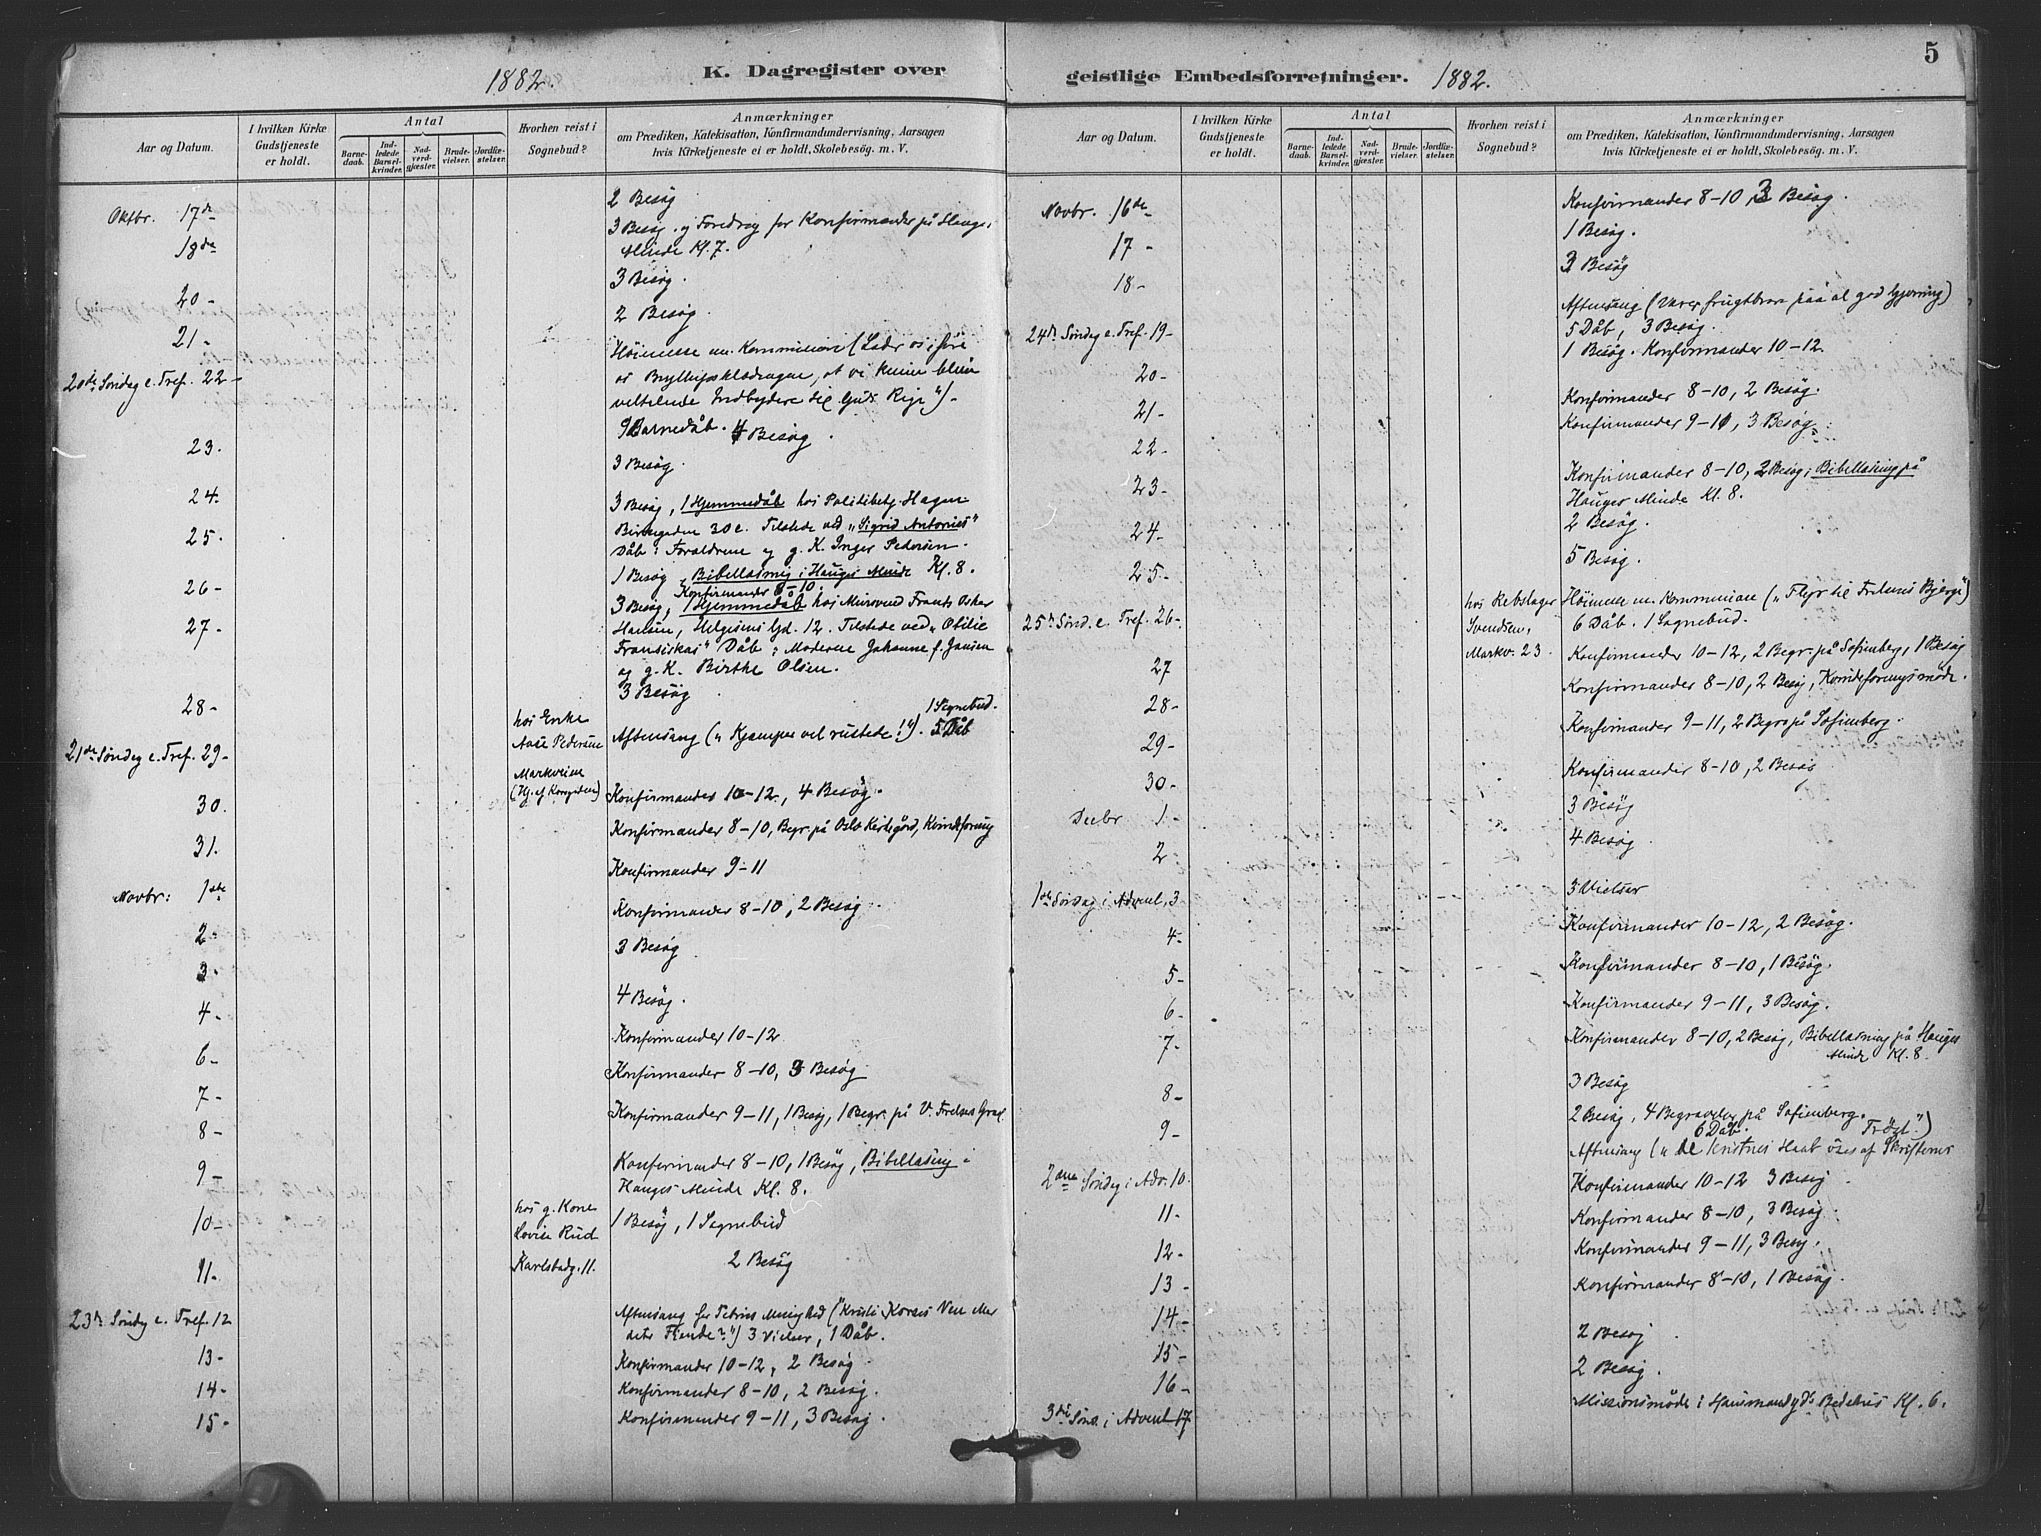 5
1882. K. Dagregister over
Aar og Datum.
I hvilken Kirke Gudstjeneste er holdt.
Antal
Barne-daab.
Ind-ledede Barsel-kvinder.
Nad-verd-gjæster.
Brude-vielser.
Jordfæ-stelser.
Hvorhen reist i Sognebud?
Anmærkninger
om Prædiken, Katekisation, Konfirmandundervisning, Aarsagen
hvis Kirketjeneste ei er holdt, Skolebesög. m. V.
Oktbr. 17de
2 Besög
18de
3 Besög og Foredrag for Konfirmander på Hauges
Minde Kl. 7.
20 -
3 Besög.
21 -
2 Besög.
20de Søndag e. Tref. 22 -
Höimesse m. Kommunion (Lader os iføre
os Bryllupsklædningen, at vi kunne blive
Indbydere til Guds Rige")-
9 Barnedåb. 4 Besög.
23.
3 Besög.
24.
3 Besög, 1 Hjemmedåb hos Politibetj. Hagen
30 c. Tilstede ved „Sigrid Antonies"
25.
Dåb: Forældrene og g. K. Inger Pedersen.
26 -
1 Besög, Bibellæsning i Hauges Minde Kl. 8.
Konfirmander 8-10.
27 -
3 Besög, 1 Hjemmedåb hos Murersvend Frants Oskar
Hansen, Helgesens Gd. 12. Tilstede ved „Otilie
Fransiskas" Dåb: Moderen Johanne f. Jansen
og g. K. Birthe Olsen.
28 -
3 Besög
21de Søndag e. Tref. 29 -
hos Enke
Aase Pedersen
Markveien
Aftensang („Kjæmper vel rustede!"). 5 Dåb
1 Sognebud.
30.
Konfirmander 10-12, 4 Besög.
31.
Konfirmander 8-10, Begr. på Oslo Kirkegård, Kvindeforening
Novbr: 1ste
Konfirmander 9-11
2 -
Konfirmander 8-10, 2 Besög
3 -
3 Besög
4 -
4 Besög.
6 -
Konfirmander 10-12
7 -
Konfirmander 8-10, 3 Besög
8 -
Konfirmander 9-11, 1 Besög, 1 Begr. på V. Frelsers Grav.
9 -
Konfirmander 8-10, 1 Besög, Bibellæsning i
Hauges Minde Kl. 8.
10 -
hos g. Kone
Lovise Rud
Karlsbadg. 11.
1 Besög, 1 Sognebud
11 -
2 Besög
23de Søndag e. Tref. 12
Aftensang for Petrus Menighed ("Kristi Korses Ven eller
dets Fiende?") 3 Vielser, 1 Dåb.
13 -
Konfirmander 10-12, 2 Besög
14 -
Konfirmander 8-10, 2 Besög.
15 -
Konfirmander 9-11, 3 Besög.
geistlige Embedsforretninger. 1882.
Aar og Datum.
I hvilken Kirke Gudstjeneste er holdt.
Antal
Barne-daab.
Ind-ledede Barsel-kvinder.
Nad-verd-gjæster.
Brude-vielser.
Jordfæ-stelser.
Hvorhen reist i Sognebud?
Anmærkninger
om Prædiken, Katekisation, Konfirmandundervisning, Aarsagen
hvis Kirketjeneste ei er holdt, Skolebesög. m. V.
Novbr. 16de
Konfirmander 8-10, 3 Besög.
17 -
1 Besög.
18 -
3 Besög
24de Søndag e. Tref. 19 -
Aftensang (Værer frugtbare paa al god Gjerning)
5 Dåb, 3 Besög.
20 -
1 Besög. Konfirmander 10-12.
21 -
Konfirmander 8-10, 2 Besög.
22 -
Konfirmander 9-11, 3 Besög.
23 -
Konfirmander 8-10, 2 Besög, Bibellæsning på
Hauges Minde Kl. 8.
24 -
2 Besög.
25 -
5 Besög.
25de Sönd. e. Tref. 26 -
hos Rebslager
Svendsen,
Markv. 23
Höimesse m. Kommunion („Flyr til Frelsens Bjerge")
6 Dåb. 1 Sognebud.
27
Konfirmander 10-12, 2 Begr. på Sofienberg, 1 Besög
28 -
Konfirmander 8-10, 2 Besög, Kvindeforeningsmöde.
29 -
Konfirmander 9-11, 2 Begr. på Sofienberg.
30 -
Konfirmander 8-10, 2 Besög
Decbr 1 -
3 Besög
2 -
4 Besög
1ste Søndag i Advent, 3
3 Vielser
4 -
Konfirmander 10-12, 2 Besög.
5 -
Konfirmander 8-10, 1 Besög.
6 -
Konfirmander 9-11, 3 Besög.
7 -
Konfirmander 8-10, 2 Besög, Bibellæsning på Hauges
Minde Kl. 8.
8 -
3 Besög
9 -
2 Besög, 4 Begravelser på Sofienberg.
2den Søndag i Adv. 10.
6 Dåb.
Aftensang („De Kristnes Haab öses af Skrifternes Tröst")
11 -
Konfirmander 10-12 3 Besög
12 -
Konfirmander 8-10, 3 Besög.
13 -
Konfirmander 9-11, 3 Besög.
14 -
Konfirmander 8-10, 1 Besög.
15 -
2 Besög
16 -
2 Besög.
3die Sönd. i Advent 17
Missionsmöde i Hausmandgds Bedehus Kl. 6.